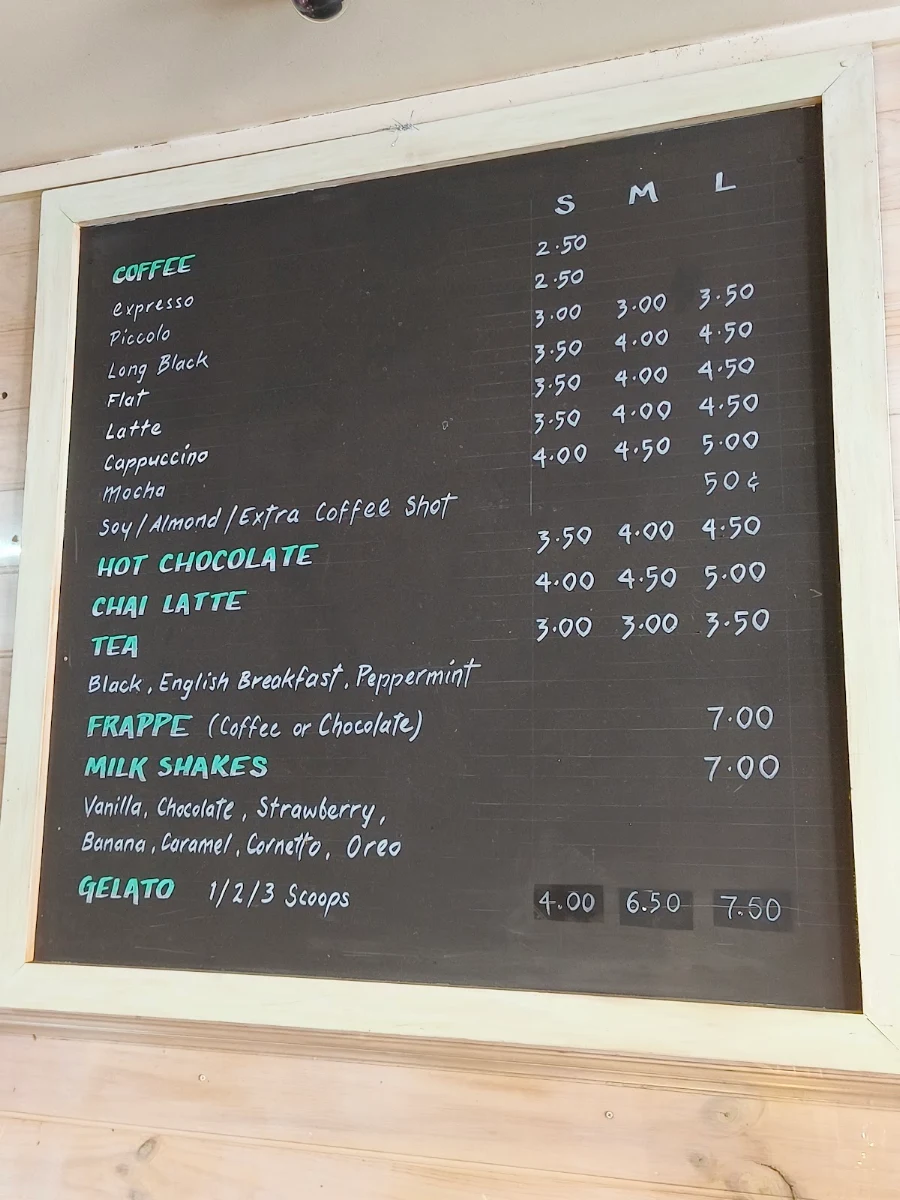 S M L
COFFEE
expresso 2.50
Piccolo 2.50
Long Black 3.00 3.00 3.50
Flat 3.50 4.00 4.50
Latte 3.50 4.00 4.50
Cappuccino 3.50 4.00 4.50
Mocha 4.00 4.50 5.00
Soy/Almond/Extra Coffee Shot 50¢
HOT CHOCOLATE 3.50 4.00 4.50
CHAI LATTE 4.00 4.50 5.00
TEA 3.00 3.00 3.50
Black, English Breakfast, Peppermint
FRAPPE (Coffee or Chocolate) 7.00
MILK SHAKES 7.00
Vanilla, Chocolate, Strawberry,
Banana, Caramel, Cornetto, Oreo
GELATO 1/2/3 Scoops 4.00 6.50